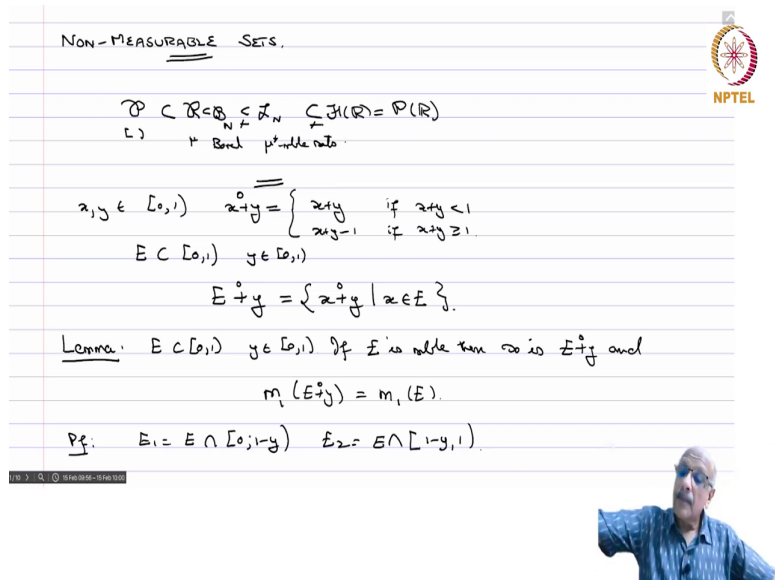 NON-MEASURABLE SETS.
NPTEL
𝒫 ⊂ ℛ ⊂ ℬ_N ⊊ ℒ_N ⊊ ℋ(ℝ) = P(ℝ)
[ ) μ Borel μ*-mble sets.
x, y ∈ [0,1) x ∔ y = { x+y if x+y < 1
x+y-1 if x+y ≥ 1.
E ⊂ [0,1) y ∈ [0,1)
E ∔ y = {x ∔ y | x ∈ E}.
Lemma. E ⊂ [0,1) y ∈ [0,1) If E is mble then so is E ∔ y and
m₁(E ∔ y) = m₁(E).
Pf: E₁ = E ∩ [0, 1-y) E₂ = E ∩ [1-y, 1).
1/10 15 Feb 09:56 – 15 Feb 10:00